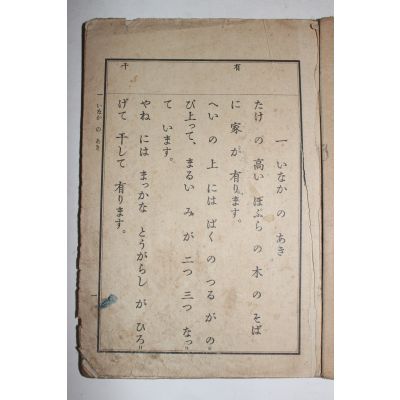 有
干
一 いなか の あき
たけ の 高い ぽぷら の 木 の そば
に 家 が 有ります。
へい の 上 には ぱく の つる が の〃
び上って、まるい み が 二つ 三つ なっ〃
て います。
やね には まっかな とうがらし が ひろ〃
げて 干して 有ります。
一 いなか の あき
一